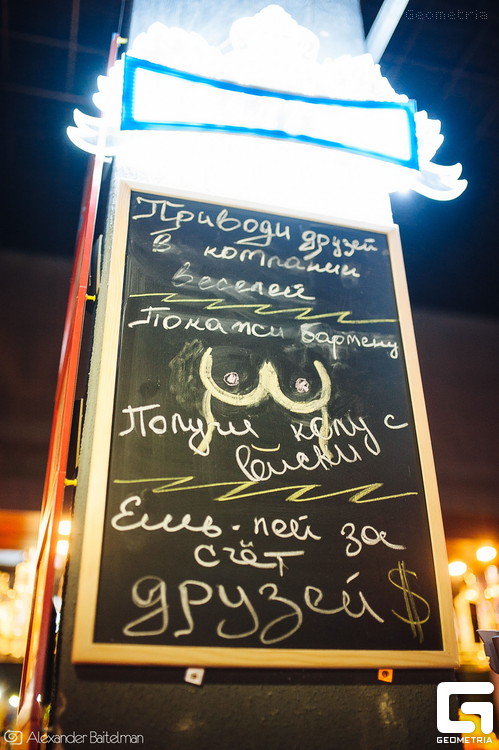 Geometria
Приводи друзей
в компании
веселей
Покажи бармену
Получи колу с
виски
Ешь-пей за
счёт
друзей $
Alexander Baitelman
G
GEOMETRIA